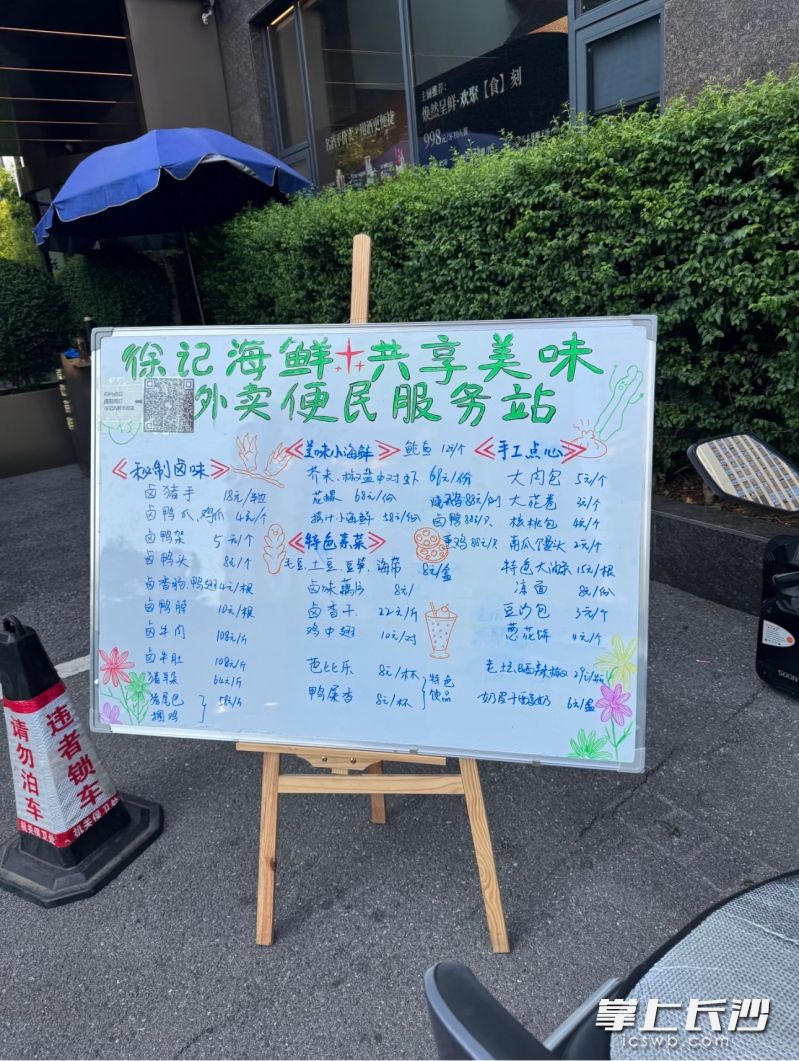 主厨推荐:
焕然呈鲜·欢聚【食】刻
998元
徐记海鲜+共享美味
外卖便民服务站
《秘制卤味》
卤猪手 18元/
卤鸭爪、鸡爪 4元/个
卤鸭架 5元/个
卤鸭头 8元/个
卤香肠、鸭翅 4元/根
卤鸭脖 10元/根
卤牛肉 108元/斤
卤牛肚 108元/斤
猪耳朵 64元/斤
猪尾巴 58元/斤
捆鸡
《美味小海鲜》
鲍鱼 12元/个
芥末、椒盐中对虾 68元/份
花螺 68元/份
捞汁小海鲜 58元/份
烧鸡 88元/只
卤鸭 88元/只
熏鸡 88元/只
《特色素菜》
毛豆、土豆、豆笋、海带 8元/盒
卤味藕片 8元/
卤香干 22元/斤
鸡中翅 10元/对
芭比乐 8元/杯
鸭屎香 8元/杯
特色饮品
《手工点心》
大肉包 5元/个
大花卷 3元/个
核桃包 4元/个
南瓜馒头 2元/个
特色大油条 15元/根
凉面 8元/份
豆沙包 3元/个
葱花饼 4元/个
老坛晒辣椒 29元/瓶
奶皮子酸奶 6元/盒
违者锁车
请勿泊车
机关保卫处
掌上长沙
icswb.com